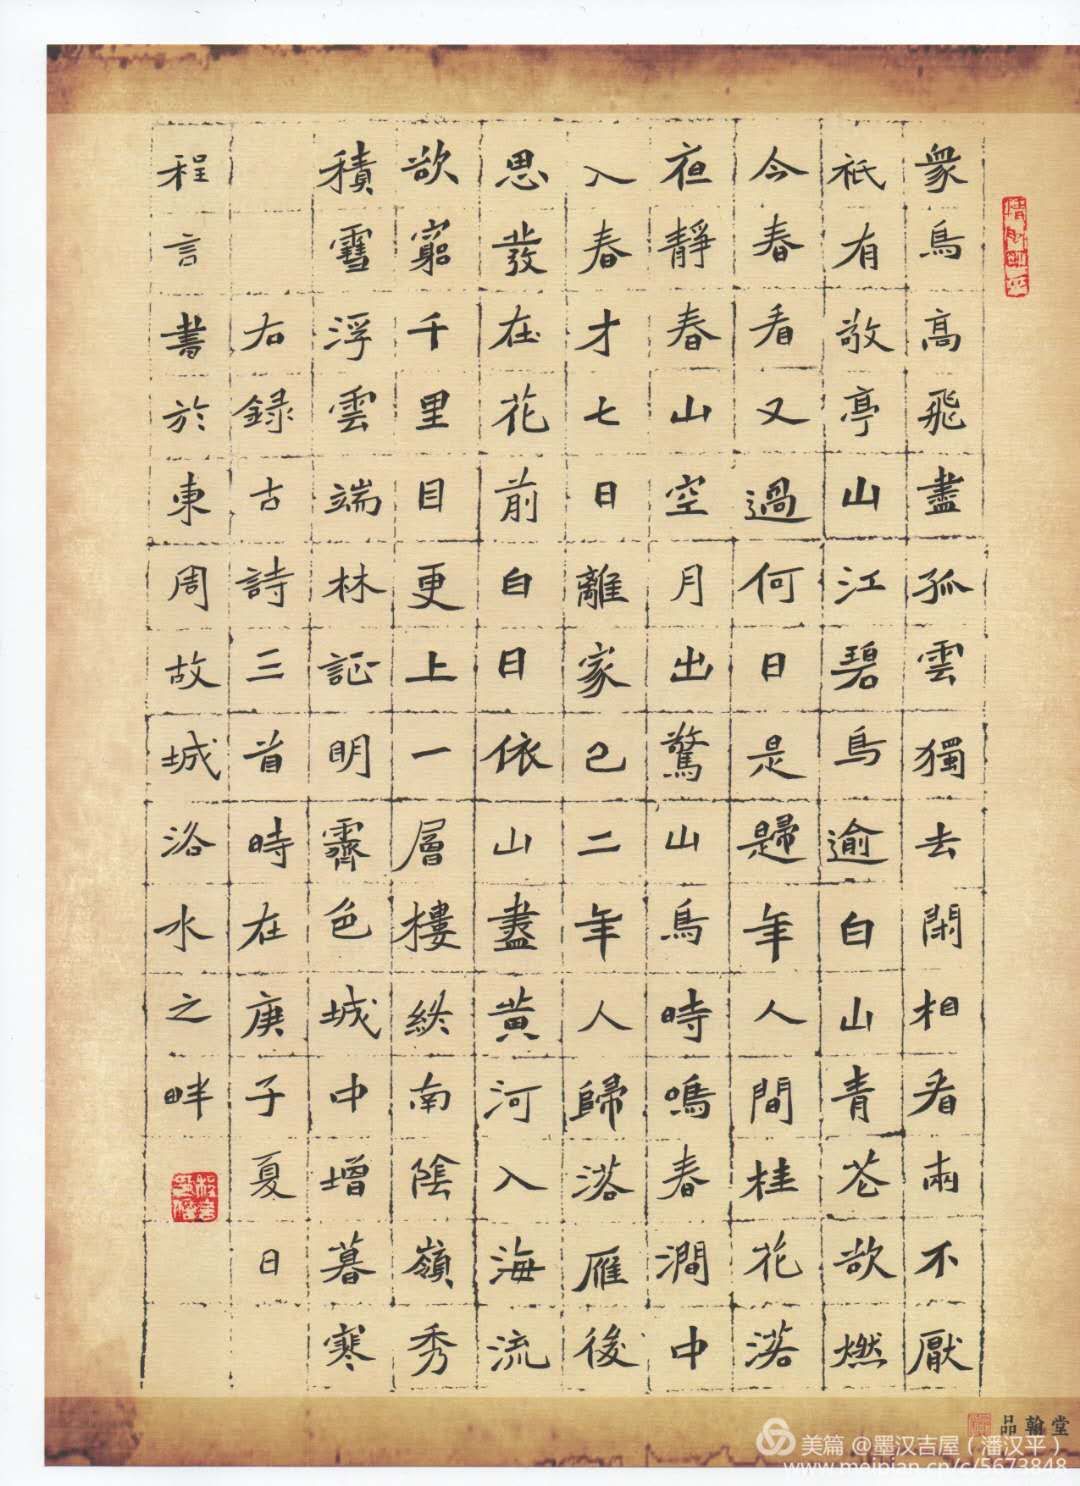 眾鳥高飛盡孤雲獨去閑相看兩不厭
祇有敬亭山江碧鳥逾白山青花欲燃
今春看又過何日是歸年人間桂花落
夜靜春山空月出驚山鳥時鳴春澗中
入春才七日離家已二年人歸落雁後
思發在花前白日依山盡黃河入海流
欲窮千里目更上一層樓終南陰嶺秀
積雪浮雲端林証明霽色城中增暮寒
右錄古詩三首時在庚子夏日
程言書於東周故城洛水之畔
品翰堂
美篇 @墨汉吉屋（潘汉平）
www.meipian.cn/c/5673848